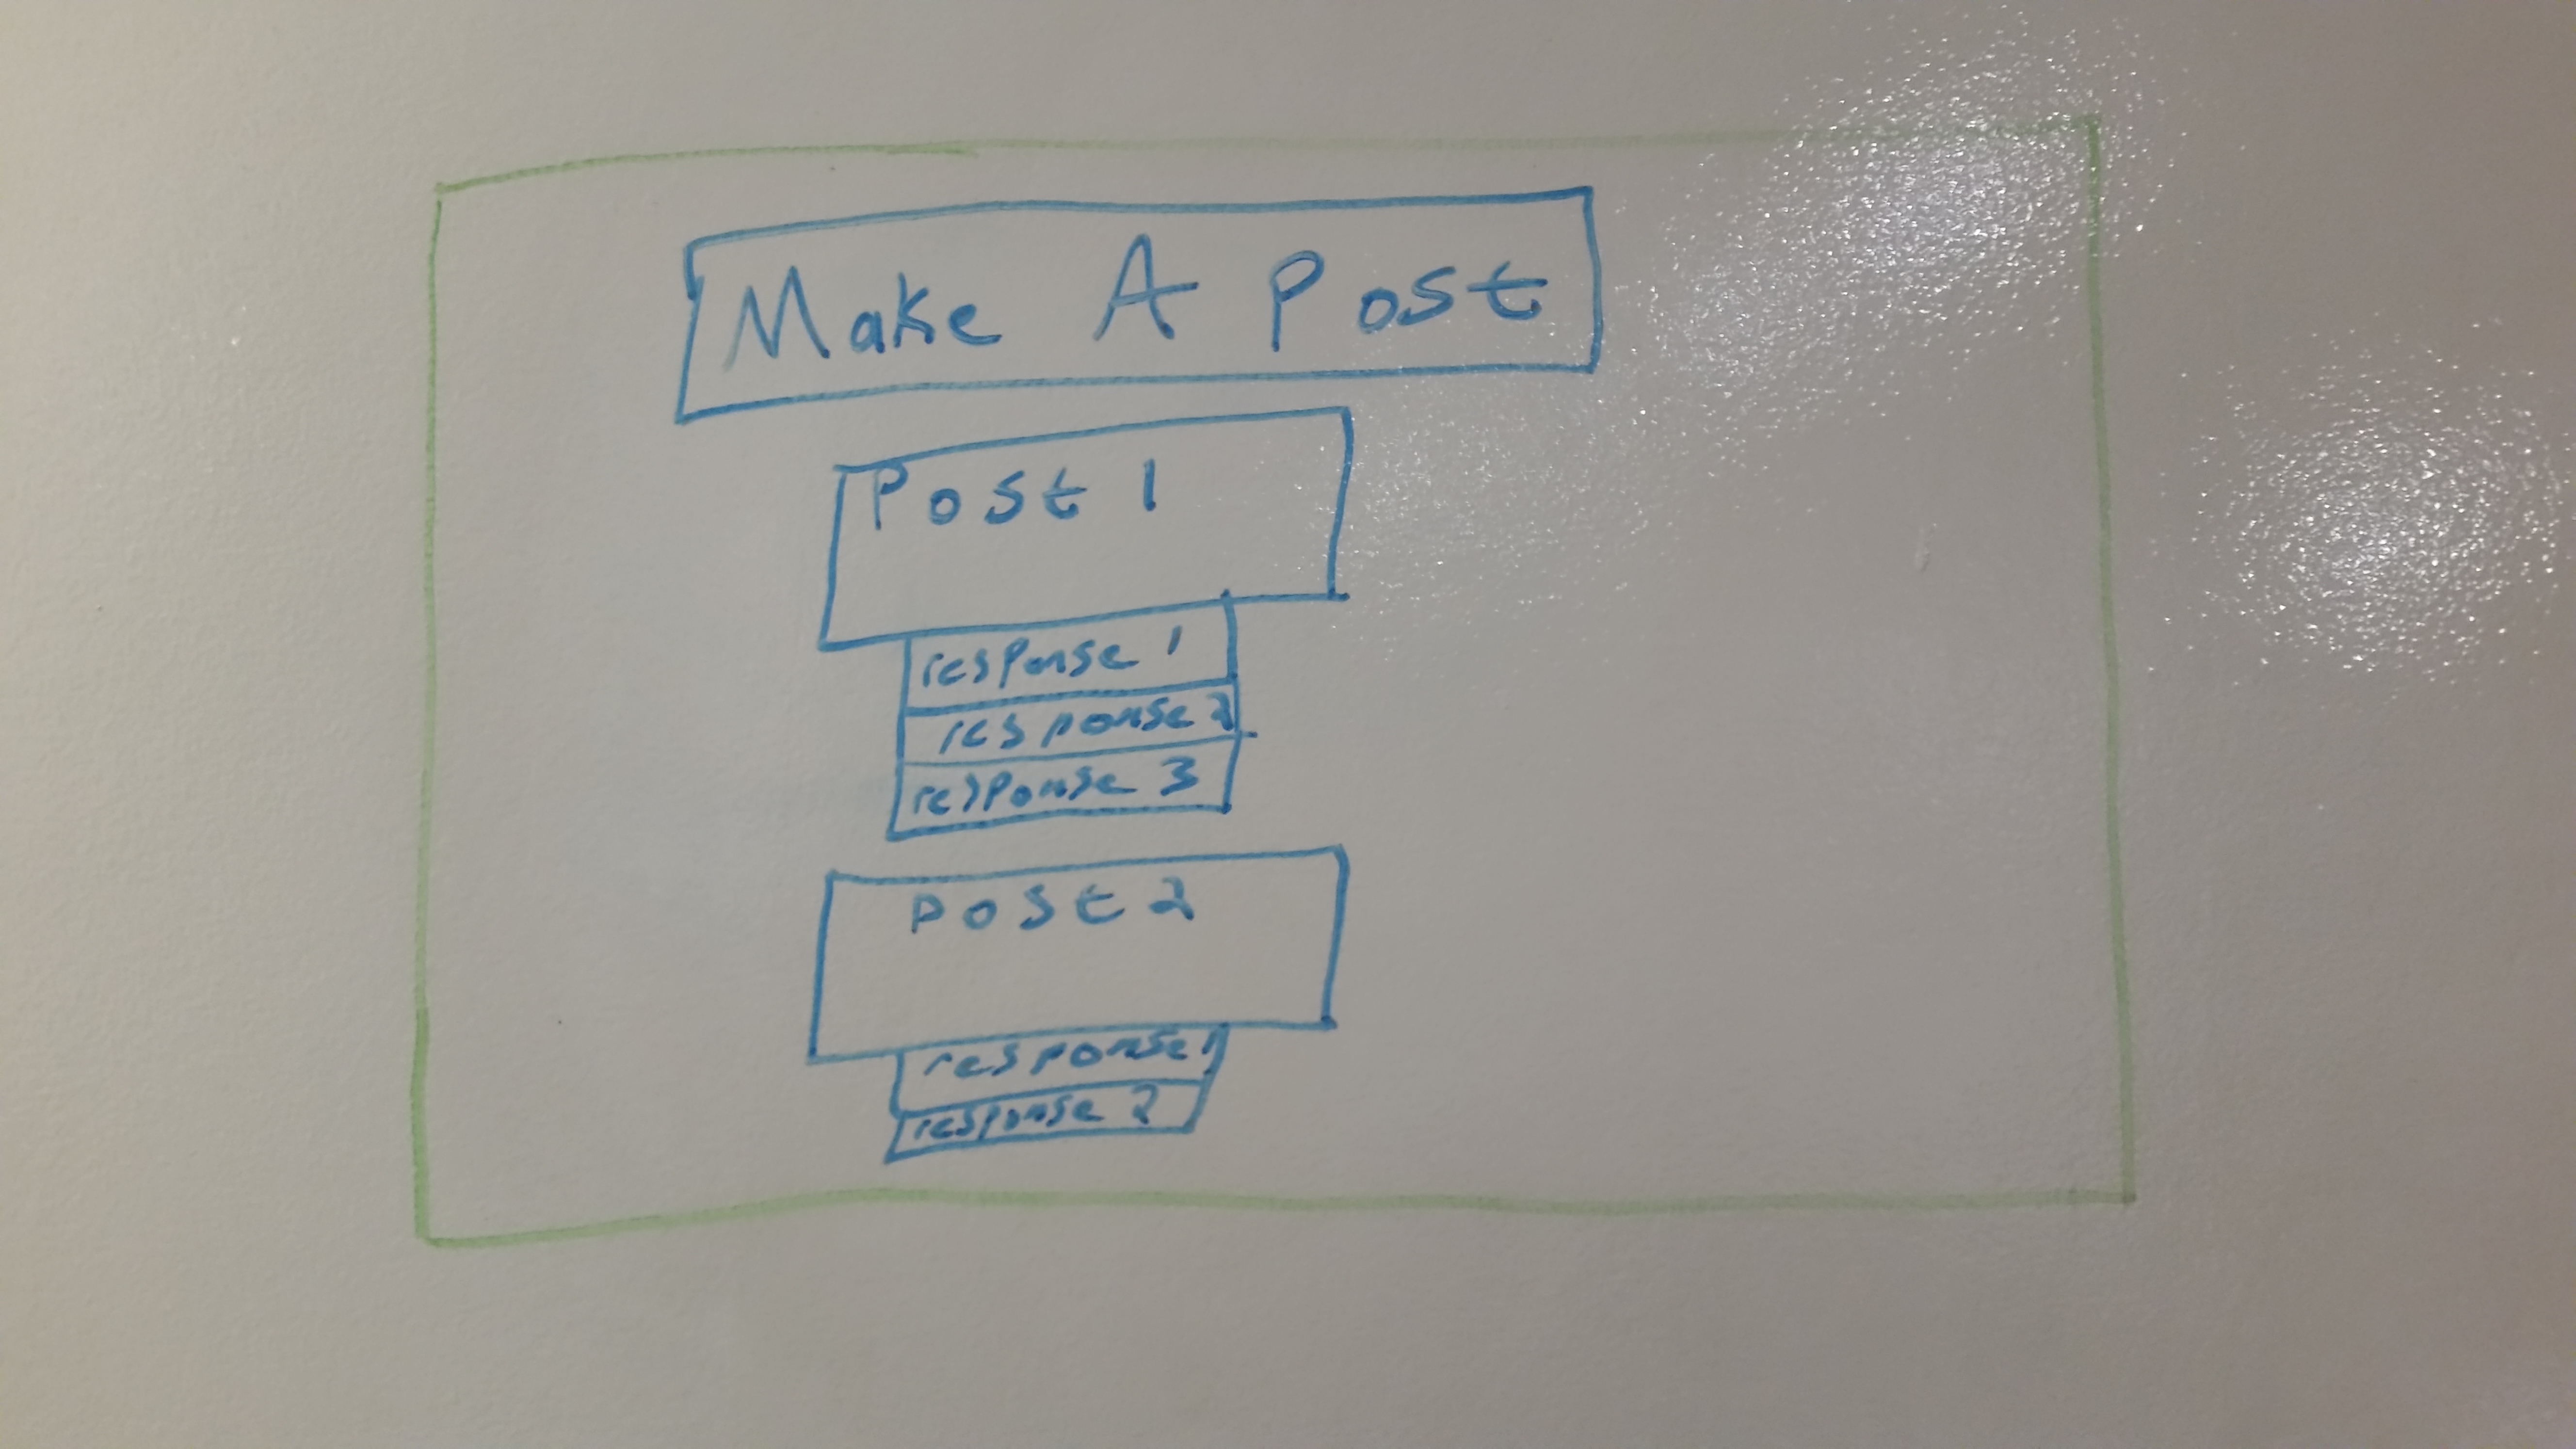 Make A Post
Post 1
response 1
response 2
response 3
post 2
response 1
response 2